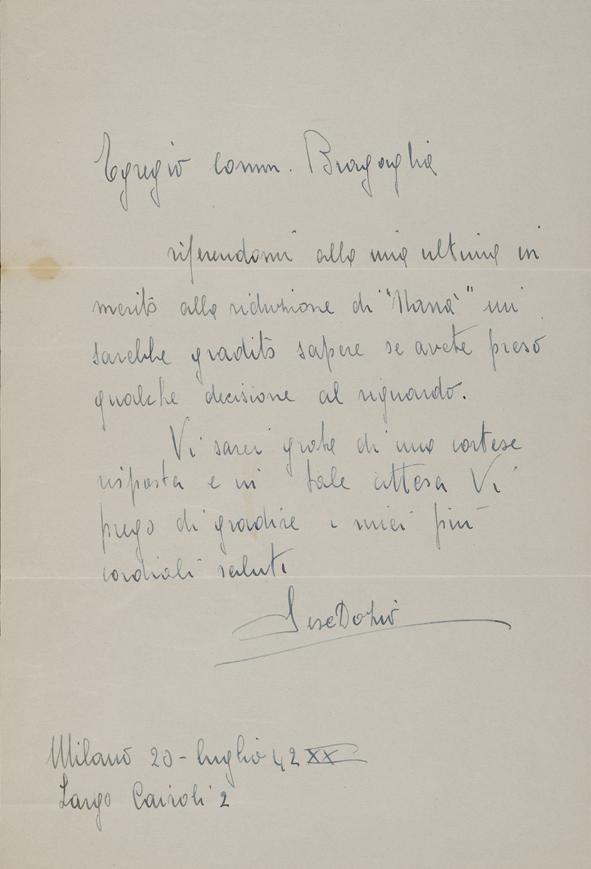 Egregio Comm. Bragaglia
riferendomi alla mia ultima in
merito alla riduzione di "Nanà" mi
sarebbe gradito sapere se avete preso
qualche decisione al riguardo.
Vi sarei grata di una cortese
risposta e in tale attesa Vi
prego di gradire i miei più
cordiali saluti
Milano 20 - luglio 42 XX
Largo Cairoli 2